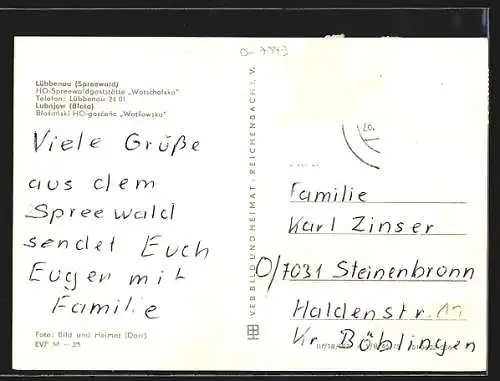 Lübbenau (Spreewald)
HO-Spreewaldgaststätte „Wotschofska“
Telefon: Lübbenau 24 01
Lubnjow (Błota)
Błośański HO-gosćeńc „Wótšowska“
Viele Grüße
aus dem
Spreewald
sendet Euch
Eugen mit
Familie
Foto: Bild und Heimat (Darr)
VEB BILD UND HEIMAT · REICHENBACH I. V.
20.
Familie
Karl Zinser
O/7031 Steinenbronn
Haldenstr. 11
Kr. Böblingen